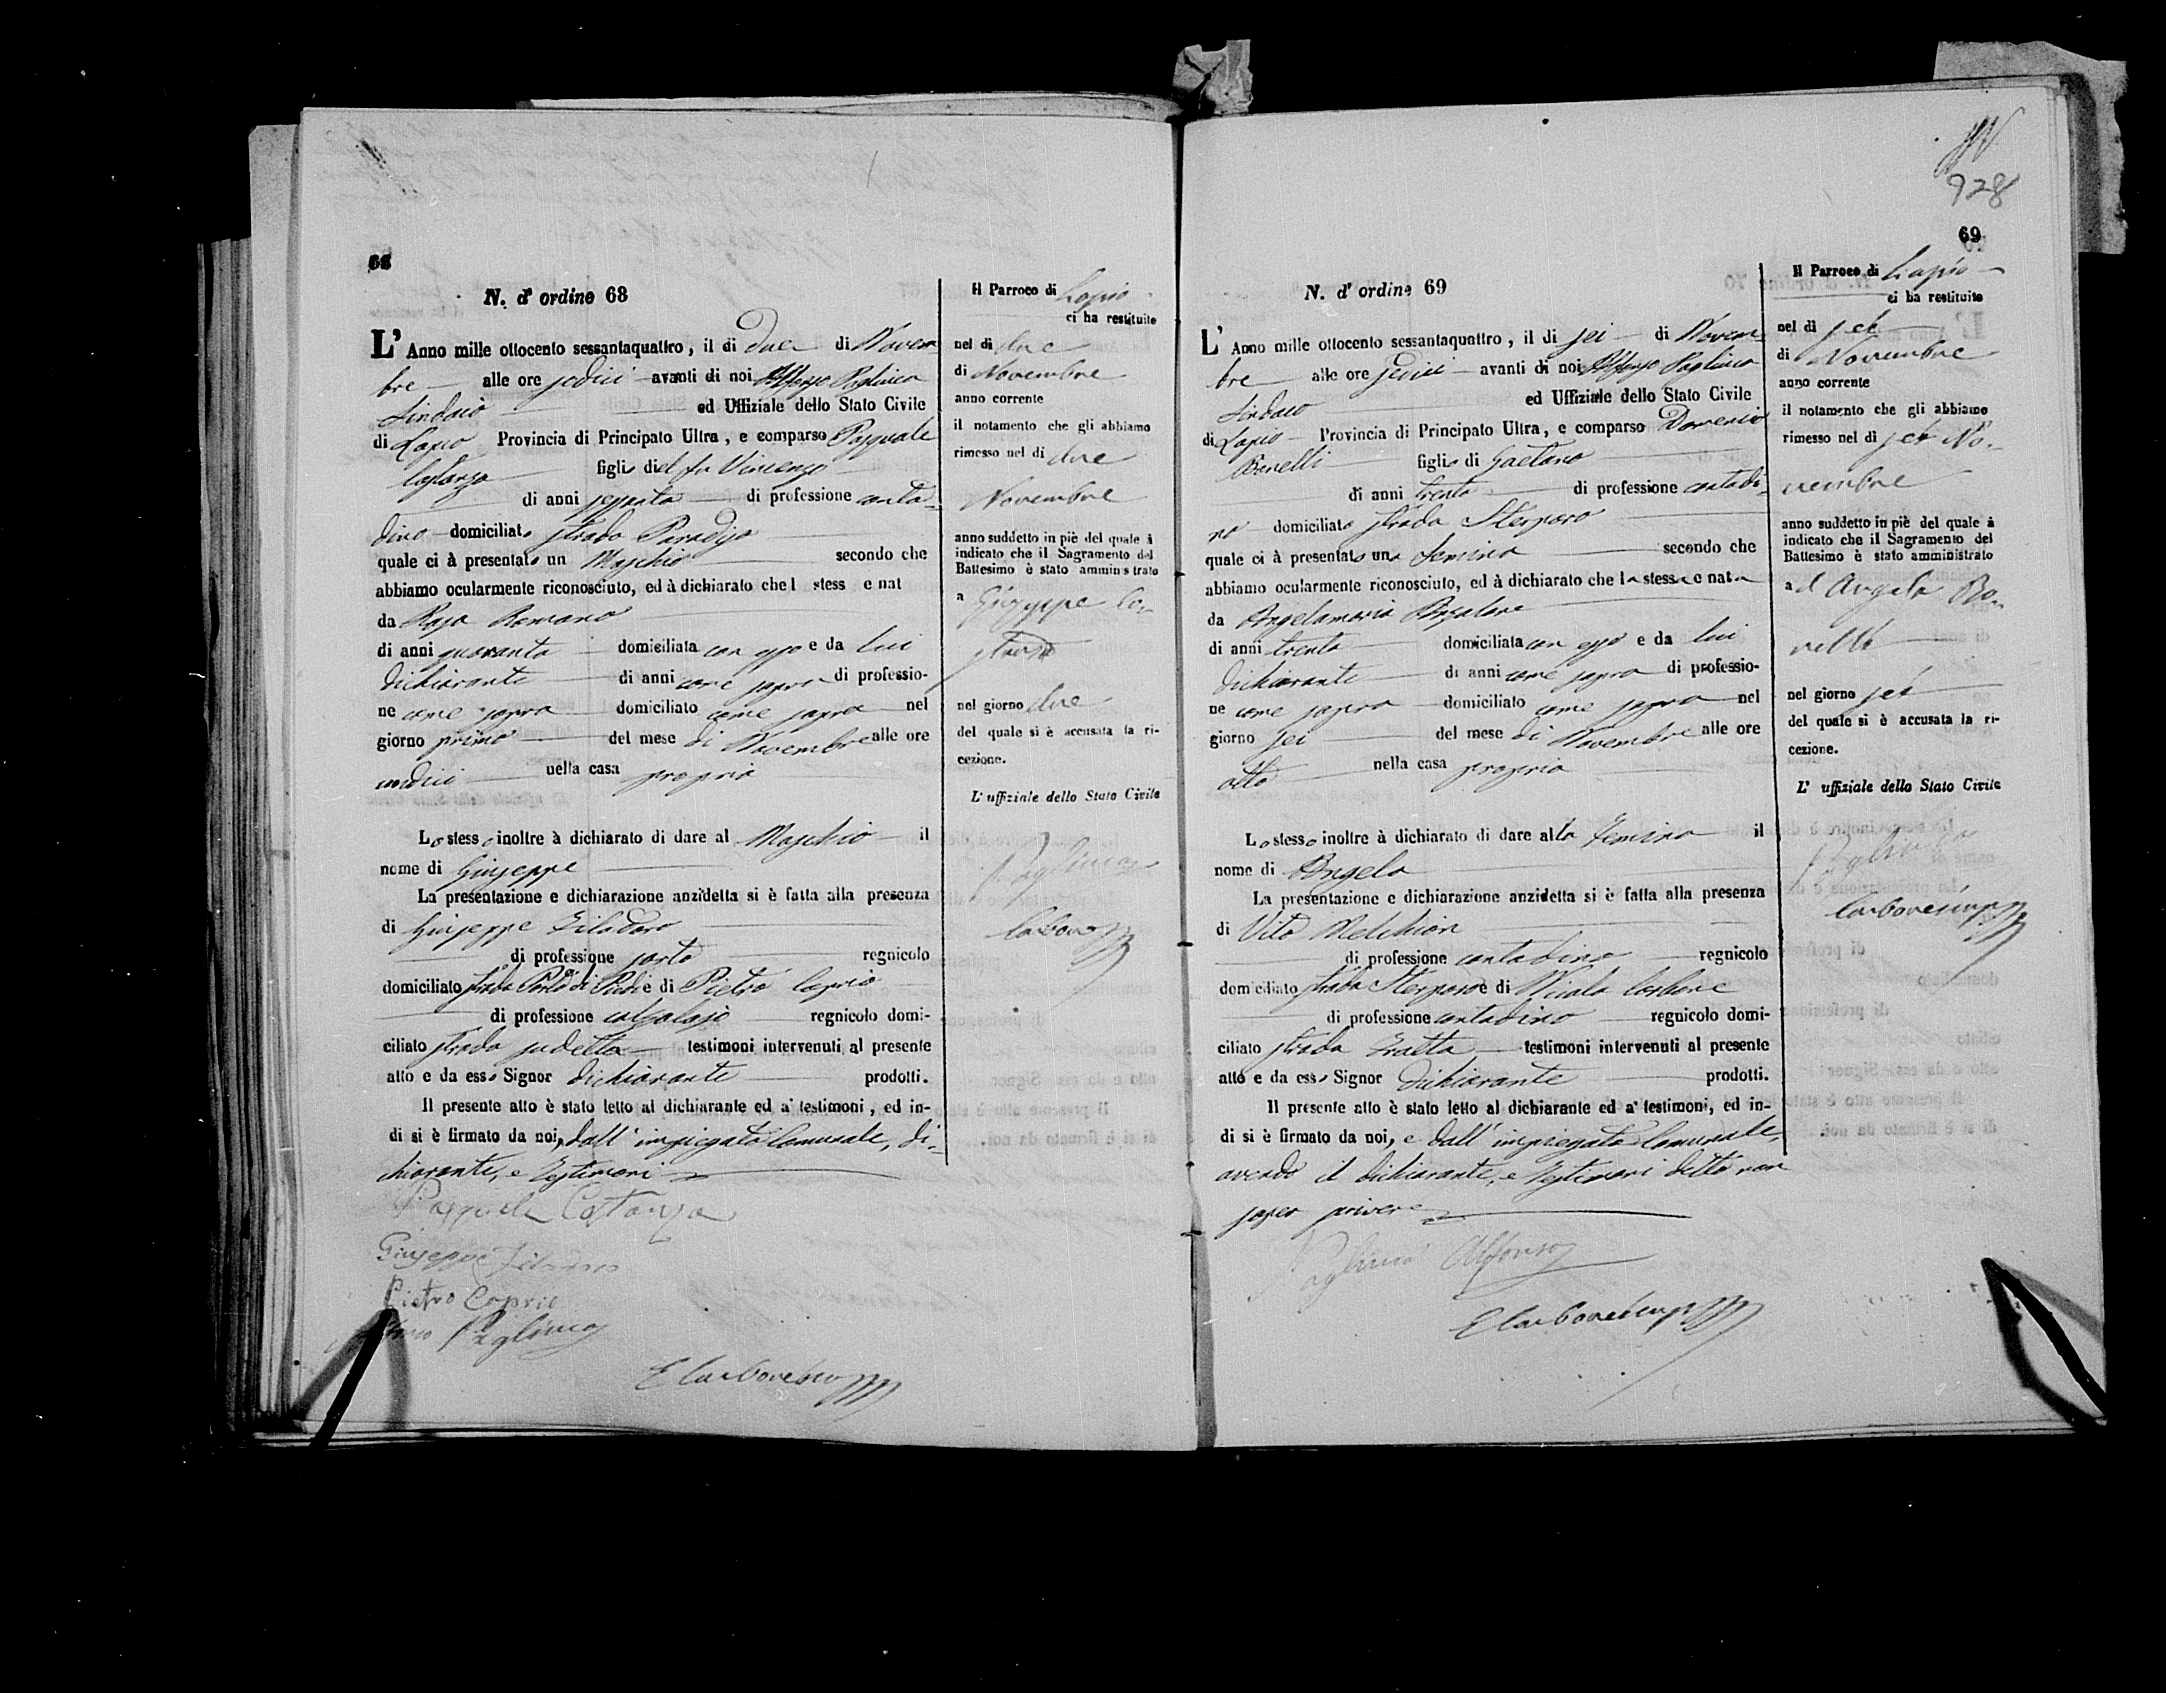 68
N. d' ordine 68
L' Anno mille ottocento sessantaquattro, il di due di Novem
bre alle ore sedici avanti di noi Alfonso Paglinca
Sindaco ed Uffiziale dello Stato Civile
di Lapio Provincia di Principato Ultra, e comparso Pasquale
Costanza figlio del fu Vincenzo
di anni sessanta di professione conta-
dino domiciliato strada Paradiso
quale ci à presentato un Maschio secondo che
abbiamo ocularmente riconosciuto, ed à dichiarato che l stess e nat
da Rosa Romano
di anni quaranta domiciliata con esso e da lui
dichiarante di anni come sopra di professio-
ne come sopra domiciliato come sopra nel
giorno primo del mese di Novembre alle ore
undici nella casa propria
Lo stesso inoltre à dichiarato di dare al Maschio il
nome di Giuseppe
La presentazione e dichiarazione anzidetta si è fatta alla presenza
di Giuseppe Filadoro
di professione sarto regnicolo
domiciliato strada di Piedi e di Pietro Caprio
di professione calzolajo regnicolo domi-
ciliato strada sudetta testimoni intervenuti al presente
atto e da esso Signor dichiarante prodotti.
Il presente atto è stato letto al dichiarante ed a' testimoni, ed in-
di si è firmato da noi, dall' impiegato Comunale, di-
chiarante, e Testimoni
Pasquale Costanza
Giuseppe Filadoro
Pietro Caprio
Paglinca
Il Parroco di Lapio
ci ha restituito
nel di due
di Novembre
anno corrente
il notamento che gli abbiamo
rimesso nel di due
Novembre
anno suddetto in piè del quale à
indicato che il Sagramento del
Battesimo è stato amministrato
a Giuseppe Co-
stanza
nel giorno due
del quale si è accusata la ri-
cezione.
L' uffiziale dello Stato Civile
Paglinca
928
69
N. d' ordine 69
L' Anno mille ottocento sessantaquattro, il di sei di Novem
bre alle ore sedici avanti di noi Alfonso Paglinca
Sindaco ed Uffiziale dello Stato Civile
di Lapio Provincia di Principato Ultra, e comparso Domenico
Bonelli figlio di Gaetano
di anni trenta di professione contadi-
no domiciliato strada Sterparo
quale ci à presentato una Femina secondo che
abbiamo ocularmente riconosciuto, ed à dichiarato che la stessa e nata
da Angelamaria
di anni trenta domiciliata con esso e da lui
dichiarante di anni come sopra di professio-
ne come sopra domiciliato come sopra nel
giorno sei del mese di Novembre alle ore
otto nella casa propria
Lo stesso inoltre à dichiarato di dare alla Femina il
nome di Angela
La presentazione e dichiarazione anzidetta si è fatta alla presenza
di Vito Melchion
di professione contadino regnicolo
domiciliato strada Sterparo e di Nicola Carbone
di professione contadino regnicolo domi-
ciliato strada Fratta testimoni intervenuti al presente
atto e da esso Signor dichiarante prodotti.
Il presente atto è stato letto al dichiarante ed a' testimoni, ed in-
di si è firmato da noi, e dall' impiegato Comunale,
avendo il dichiarante, e Testimoni detto non
saper scrivere
Paglinca Alfonso
Il Parroco di Lapio
ci ha restituito
nel di sei
di Novembre
anno corrente
il notamento che gli abbiamo
rimesso nel di sei No-
vembre
anno suddetto in piè del quale à
indicato che il Sagramento del
Battesimo è stato amministrato
ad Angela Bo-
nelli
nel giorno sei
del quale si è accusata la ri-
cezione.
L' uffiziale dello Stato Civile
Paglinca